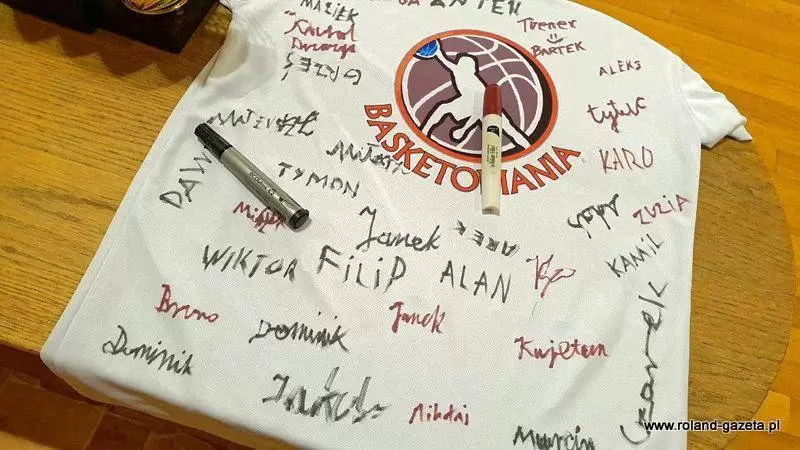 MACIEK
ANTEK
Trener
BARTEK
Karol
GRZEŚ
ALEKS
tytus
MATEUSZ
BASKETOMANIA
KARO
TYMON
DAW
ZUZIA
Janek
AREK
KAMIL
WIKTOR
FILIP
ALAN
Bruno
Janek
Dominik
Dominik
Kajetan
Jakub
Mikołaj
Marcin
www.roland-gazeta.pl